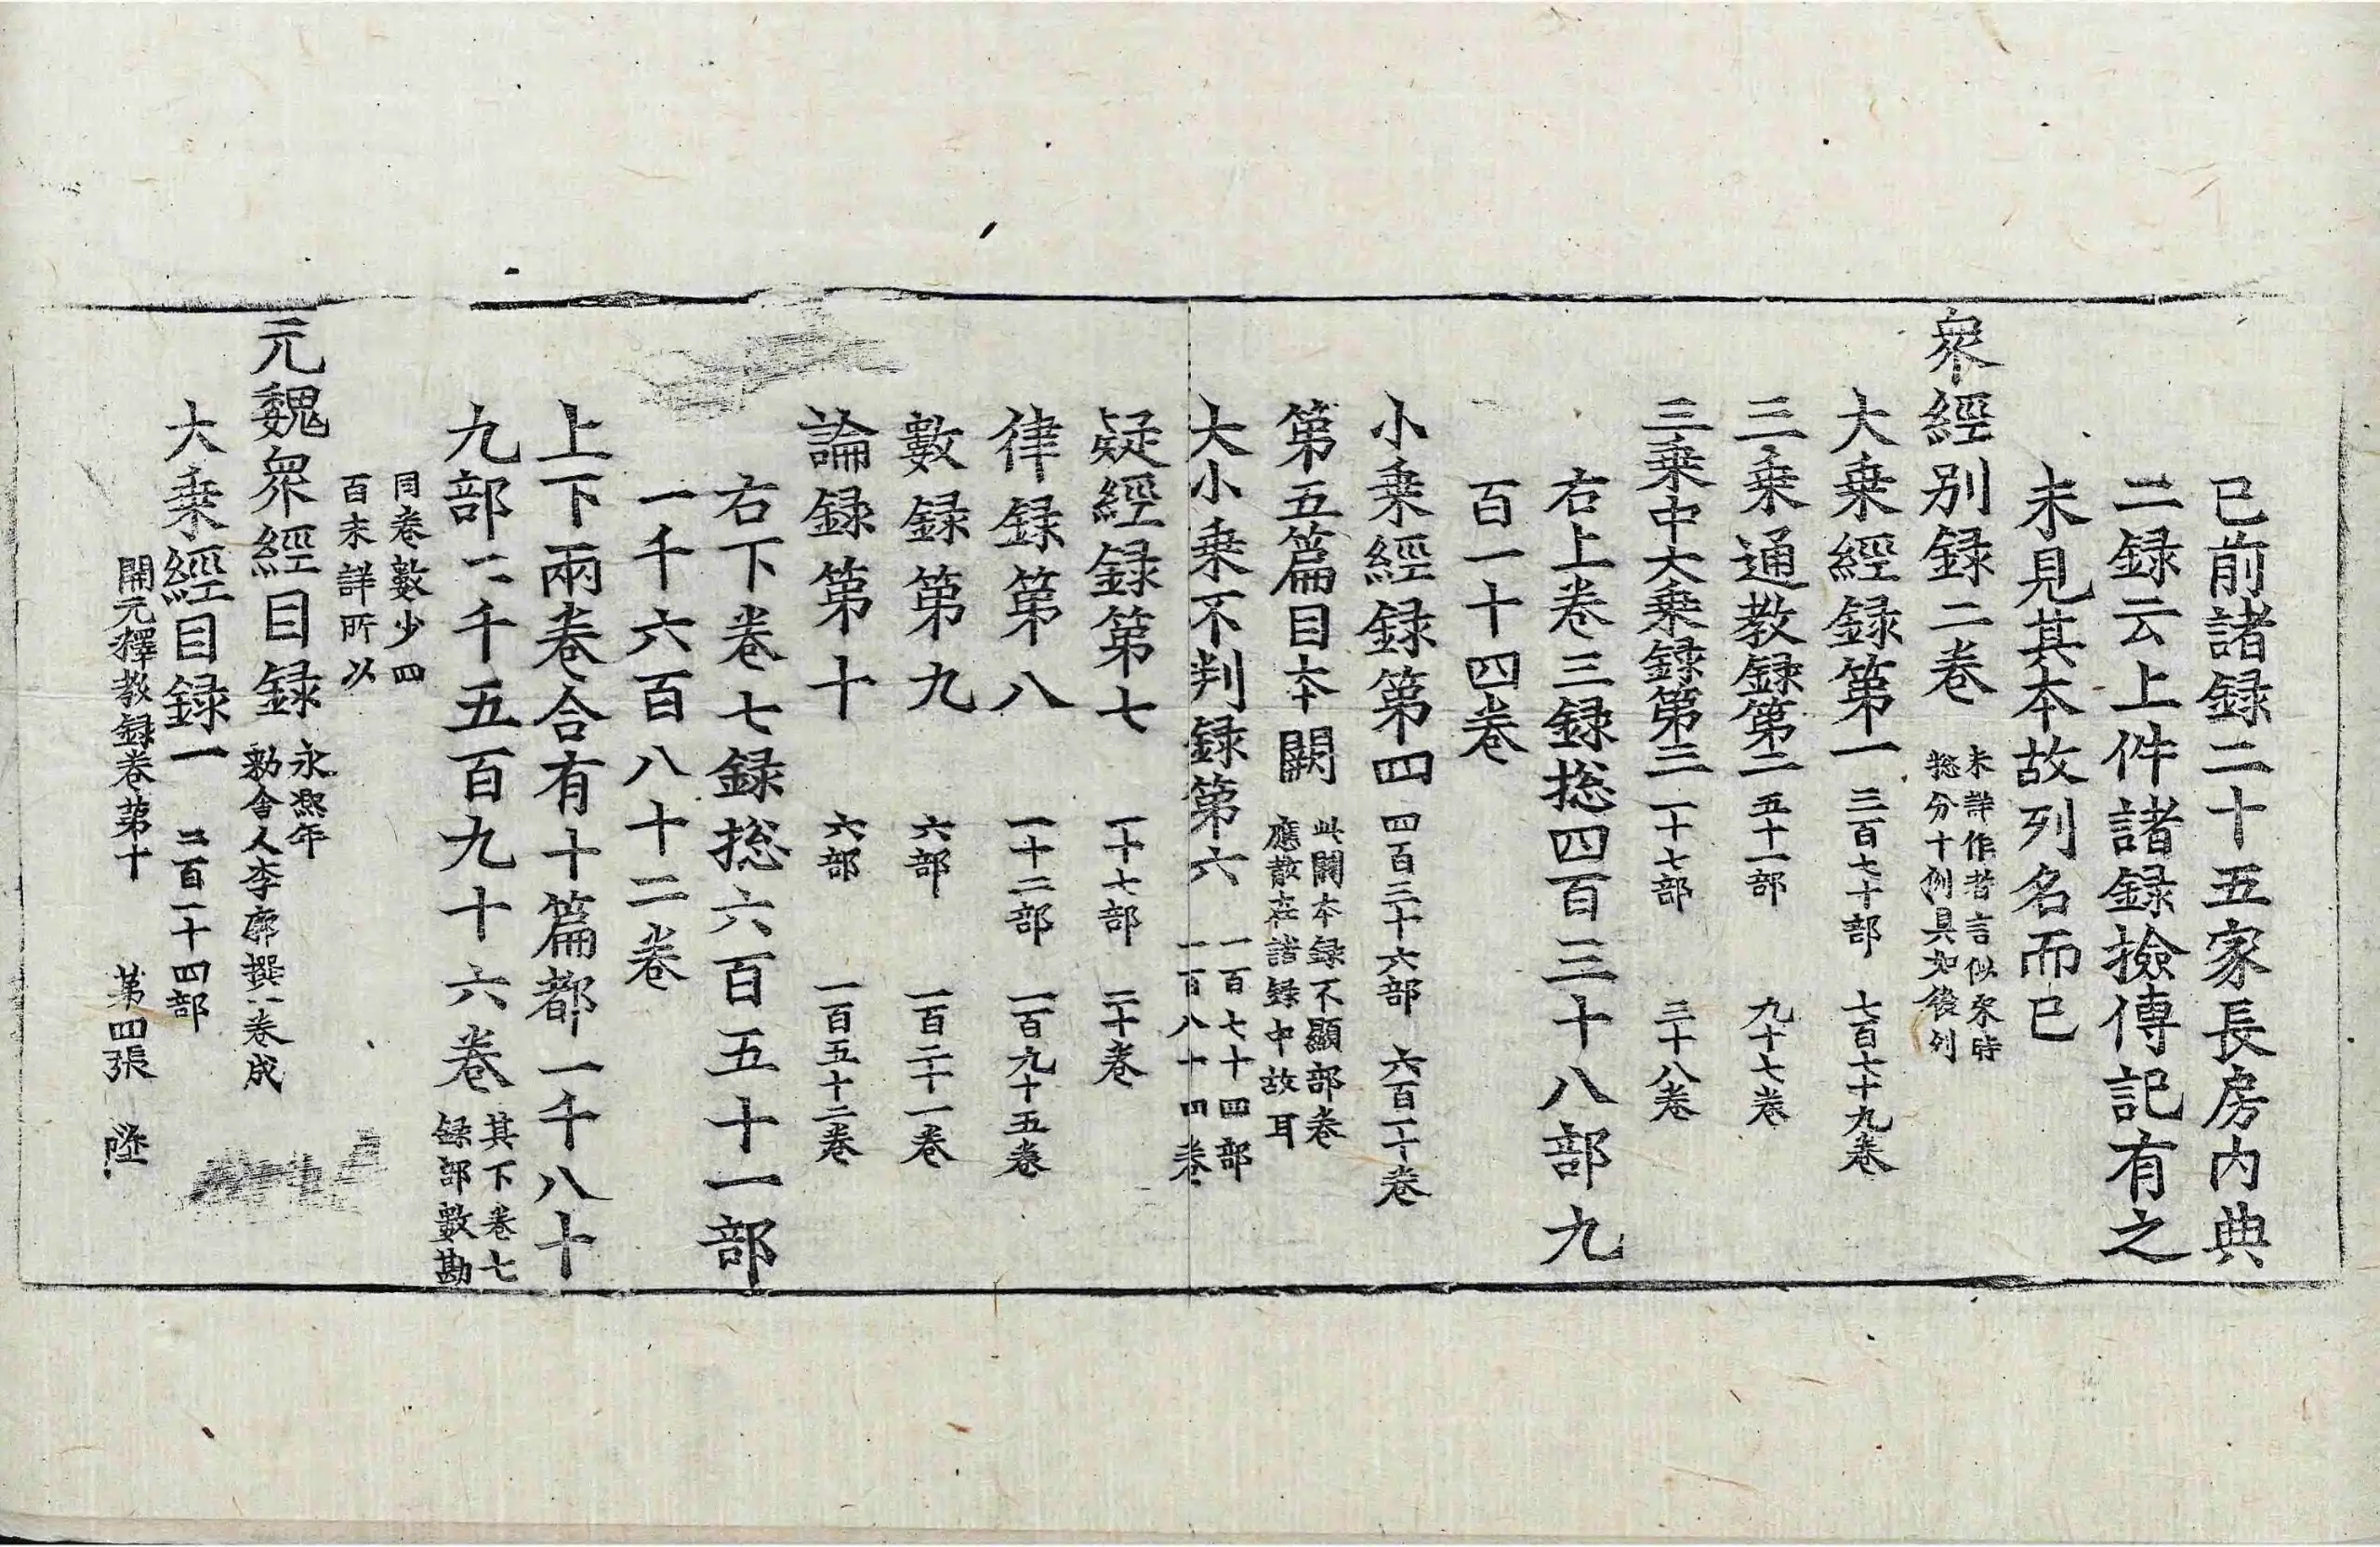 已前諸録二十五家長房內典
二録云上件諸録撿傳記有之
未見其本故列名而已
衆經別録二卷 未詳作者言似宋時
揔分十例具如後列
大乗經録第一 三百七十部 七百七十九卷
三乗通教録第二 五十一部 九十七卷
三乗中大乗録第三 一十七部 三十八卷
右上卷三録揔四百三十八部九
百一十四卷
小乗經録第四 四百三十六部 六百一十卷
第五篇目本闕 此闕本録不顯部卷
應散在諸録中故耳
大小乗不判録第六 一百七十四部
一百八十四卷
疑經録第七 一十七部 二十卷
律録第八 一十二部 一百九十五卷
數録第九 六部 一百二十一卷
論録第十 六部 一百五十二卷
右下卷七録揔六百五十一部
一千六百八十二卷
上下兩卷合有十篇都一千八十
九部二千五百九十六卷 其下卷七
録部數勘
同卷數少四
百未詳所以
元魏衆經目録 永熙年
勑舍人李廓撰八卷成
大乗經目録一 二百一十四部
開元釋教録卷第十 第四張 陞